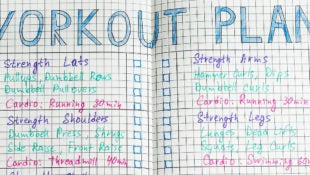 WORKOUT PLAN
Strength Lats
Pulleys, Dumbbell Rows
Dumbbell Pullovers
Cardio: Running 30min
Strength Shoulders
Dumbell Press, Shrugs
Side Raise, Front Raise
Cardio: Threadmill 40min
Strength Arms
Hammer Curls, Dips
Dumbbell Curls
Cardio: Running 30min
Strength Legs
Lunges, Dead Lifts
Squats, Leg Curls
Cardio: Swimming 60